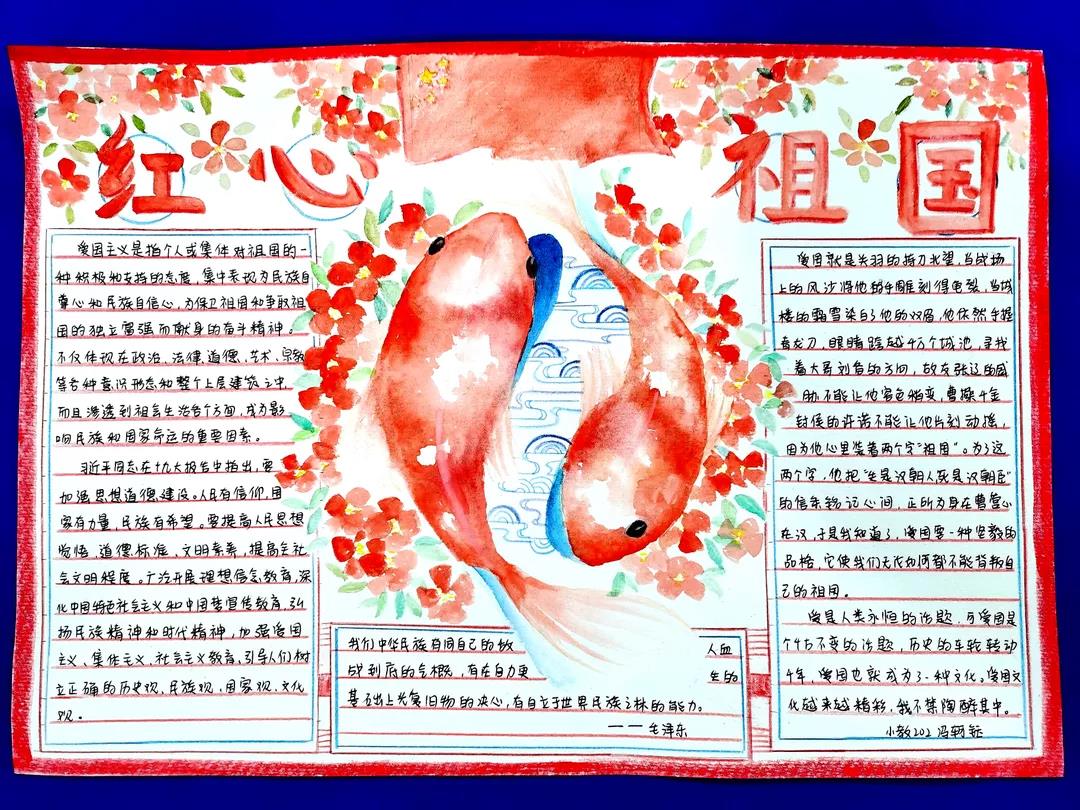 红心
祖国
爱国主义是指个人或集体对祖国的一
种积极和支持的态度，集中表现为民族自
尊心和民族自信心，为保卫祖国和争取祖
国的独立富强而献身的奋斗精神。
不仅体现在政治、法律、道德、艺术、宗教
等各种意识形态和整个上层建筑之中，
而且渗透到社会生活各个方面，成为影
响民族和国家命运的重要因素。
习近平同志在十九大报告中指出，要
加强思想道德建设。人民有信仰，国
家有力量，民族有希望。要提高人民思想
觉悟、道德标准、文明素养，提高全社
会文明程度。广泛开展理想信念教育，深
化中国特色社会主义和中国梦宣传教育，弘
扬民族精神和时代精神，加强爱国
主义、集体主义、社会主义教育，引导人们树
立正确的历史观、民族观、国家观、文化
观。
我们中华民族有同自己的敌 人血
战到底的气概，有在自力更 生的
基础上光复旧物的决心，有自立于世界民族之林的能力。
——毛泽东
爱国就是关羽的持刀北望，当战场
上的风沙将他的手雕刻得龟裂，当城
楼的飘雪染白了他的双眉，他依然手握
青龙刀，眼睛跨越千万个城池，寻找
着大哥刘备的方向，故友张辽的威
胁不能让他容色稍变，曹操千金
封侯的许诺不能让他当刻动摇，
因为他心里装着两个字“祖国”。为了这
两个字，他把“生是汉朝人死是汉朝臣”
的信条铭记心间，正所为身在曹营心
在汉，于是我知道了，爱国要一种坚毅的
品格，它使我们无论如何都不能背叛自
己的祖国。
爱是人类永恒的话题，可爱国是
个千古不变的话题，历史的车轮转动
千年，爱国也就成为了一种文化。爱国文
化越来越精彩，我不禁陶醉其中。
小教202 冯